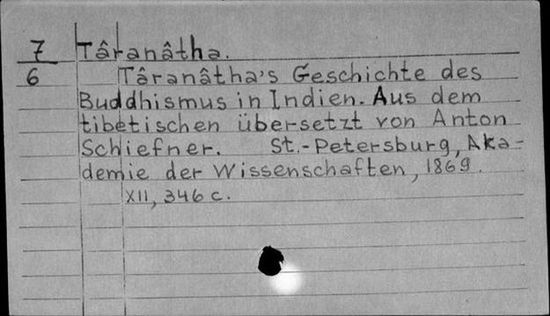 7 Târanâtha.
6 Târanâtha's Geschichte des
Buddhismus in Indien. Aus dem
tibetischen übersetzt von Anton
Schiefner. St.-Petersburg, Aka-
demie der Wissenschaften, 1869.
XII, 346 c.